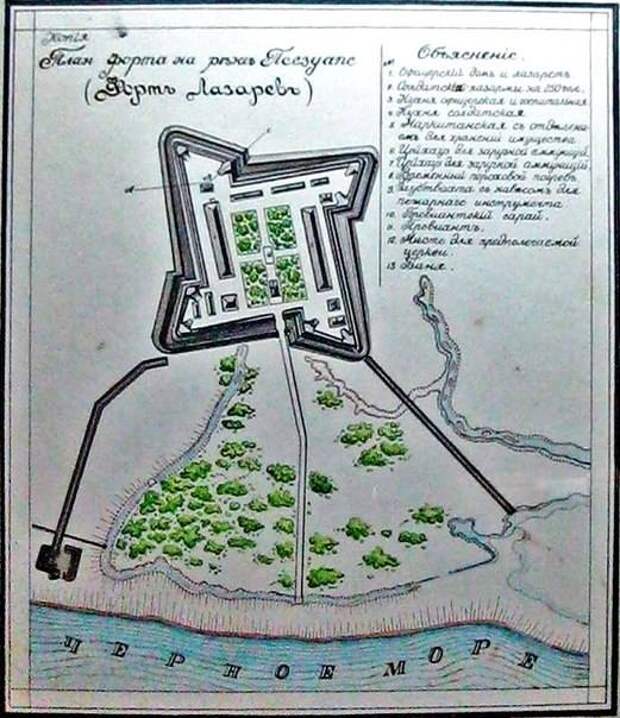 Копія
План форта на рѣкѣ Псезуапс
(Фортъ Лазаревъ)
Объясненіе.
№
1. Офицерскій домъ и лазаретъ
2. Солдатскія казармы на 250 чел.
3. Кухня офицерская и госпитальная
4. Кухня солдатская
5. Маркитанская съ отдѣлені-
емъ для храненія имущества
6. Цейхаузъ для зарядной аммуниціи
7. Цейхаузъ для аммуниціи.
8. Временный пороховой погребъ
9. съ навѣсомъ для
пожарнаго инструмента
10. Провіантскій сарай.
11. Провіантъ.
12. Мѣсто для предполагаемой
церкви.
13. Баня.
ЧЕРНОЕ МОРЕ